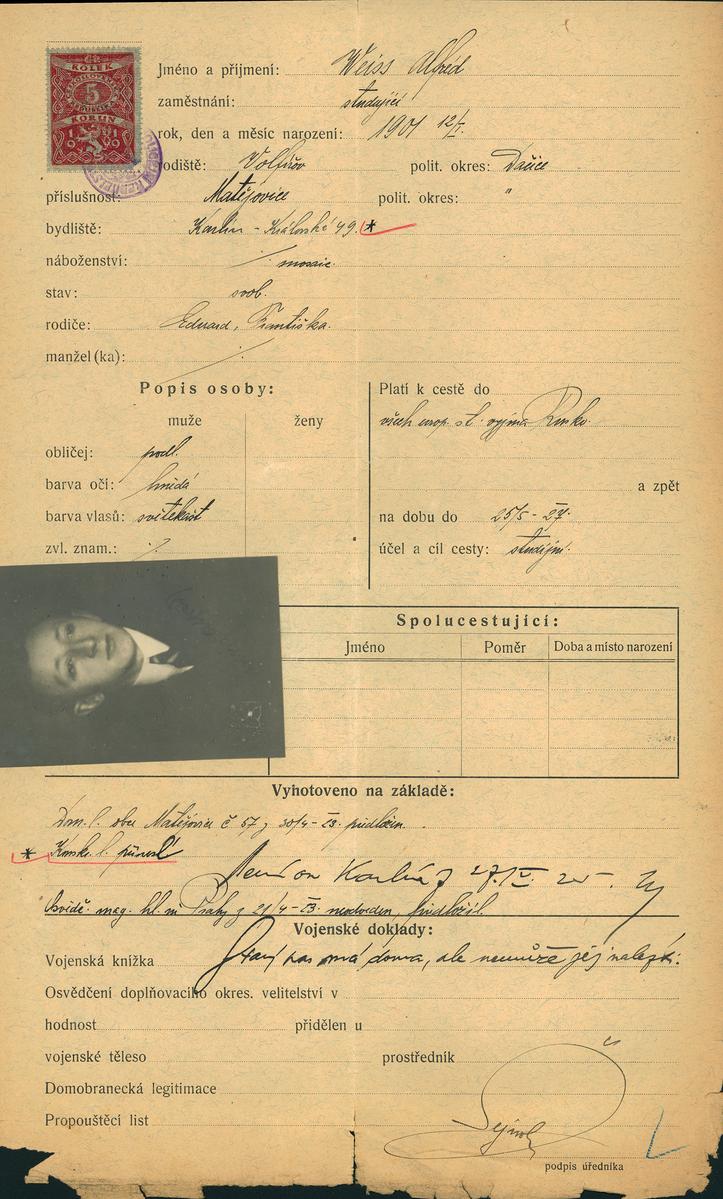 KOLEK
5
KORUN
1919
Jméno a příjmení: Weiss Alfréd
zaměstnání: studující
rok, den a měsíc narození: 1901 12/I.
rodiště: Volfířov polit. okres: Dačice
příslušnost: Matějovice polit. okres: "
bydliště: Karlín - Královská 49. *
náboženství: mosaic.
stav: svob.
rodiče: Eduard, Františka.
manžel (ka):
Popis osoby:
muže ženy
obličej: podl.
barva očí: hnědá
barva vlasů: světlekašt
zvl. znam.:
Platí k cestě do
všech europ. st. vyjma Rusko.
a zpět
na dobu do 25/5 - 27.
účel a cíl cesty: studijní.
Spolucestující:
Jméno Poměr Doba a místo narození
Vyhotoveno na základě:
Dom. l. obce Matějovice č 57 z 30/4 - 23. předložen.
*
Karlín
mag. hl. m Prahy z 21/4 - 23. předložil.
Vojenské doklady:
Vojenská knížka
pas má doma, ale nemůže jej nalézti.
Osvědčení doplňovacího okres. velitelství v
hodnost přidělen u
vojenské těleso prostředník
Domobranecká legitimace
Propouštěcí list
podpis úředníka